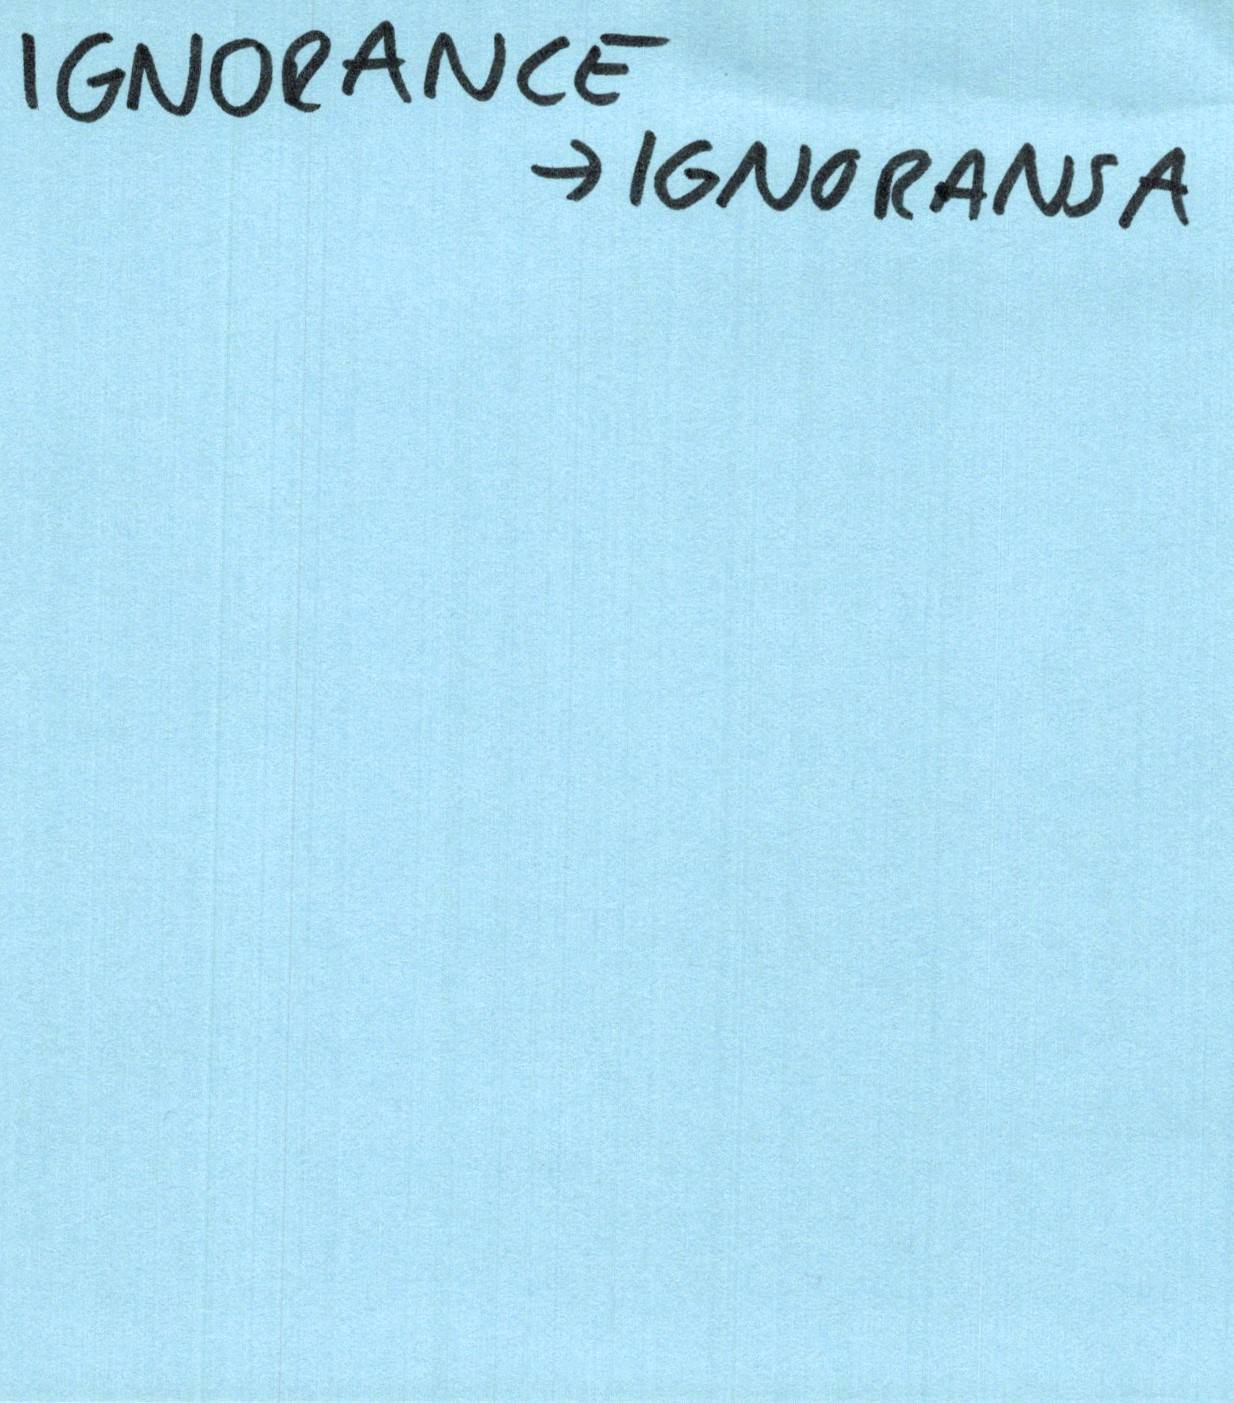 IGNORANCE
→ IGNORANSA